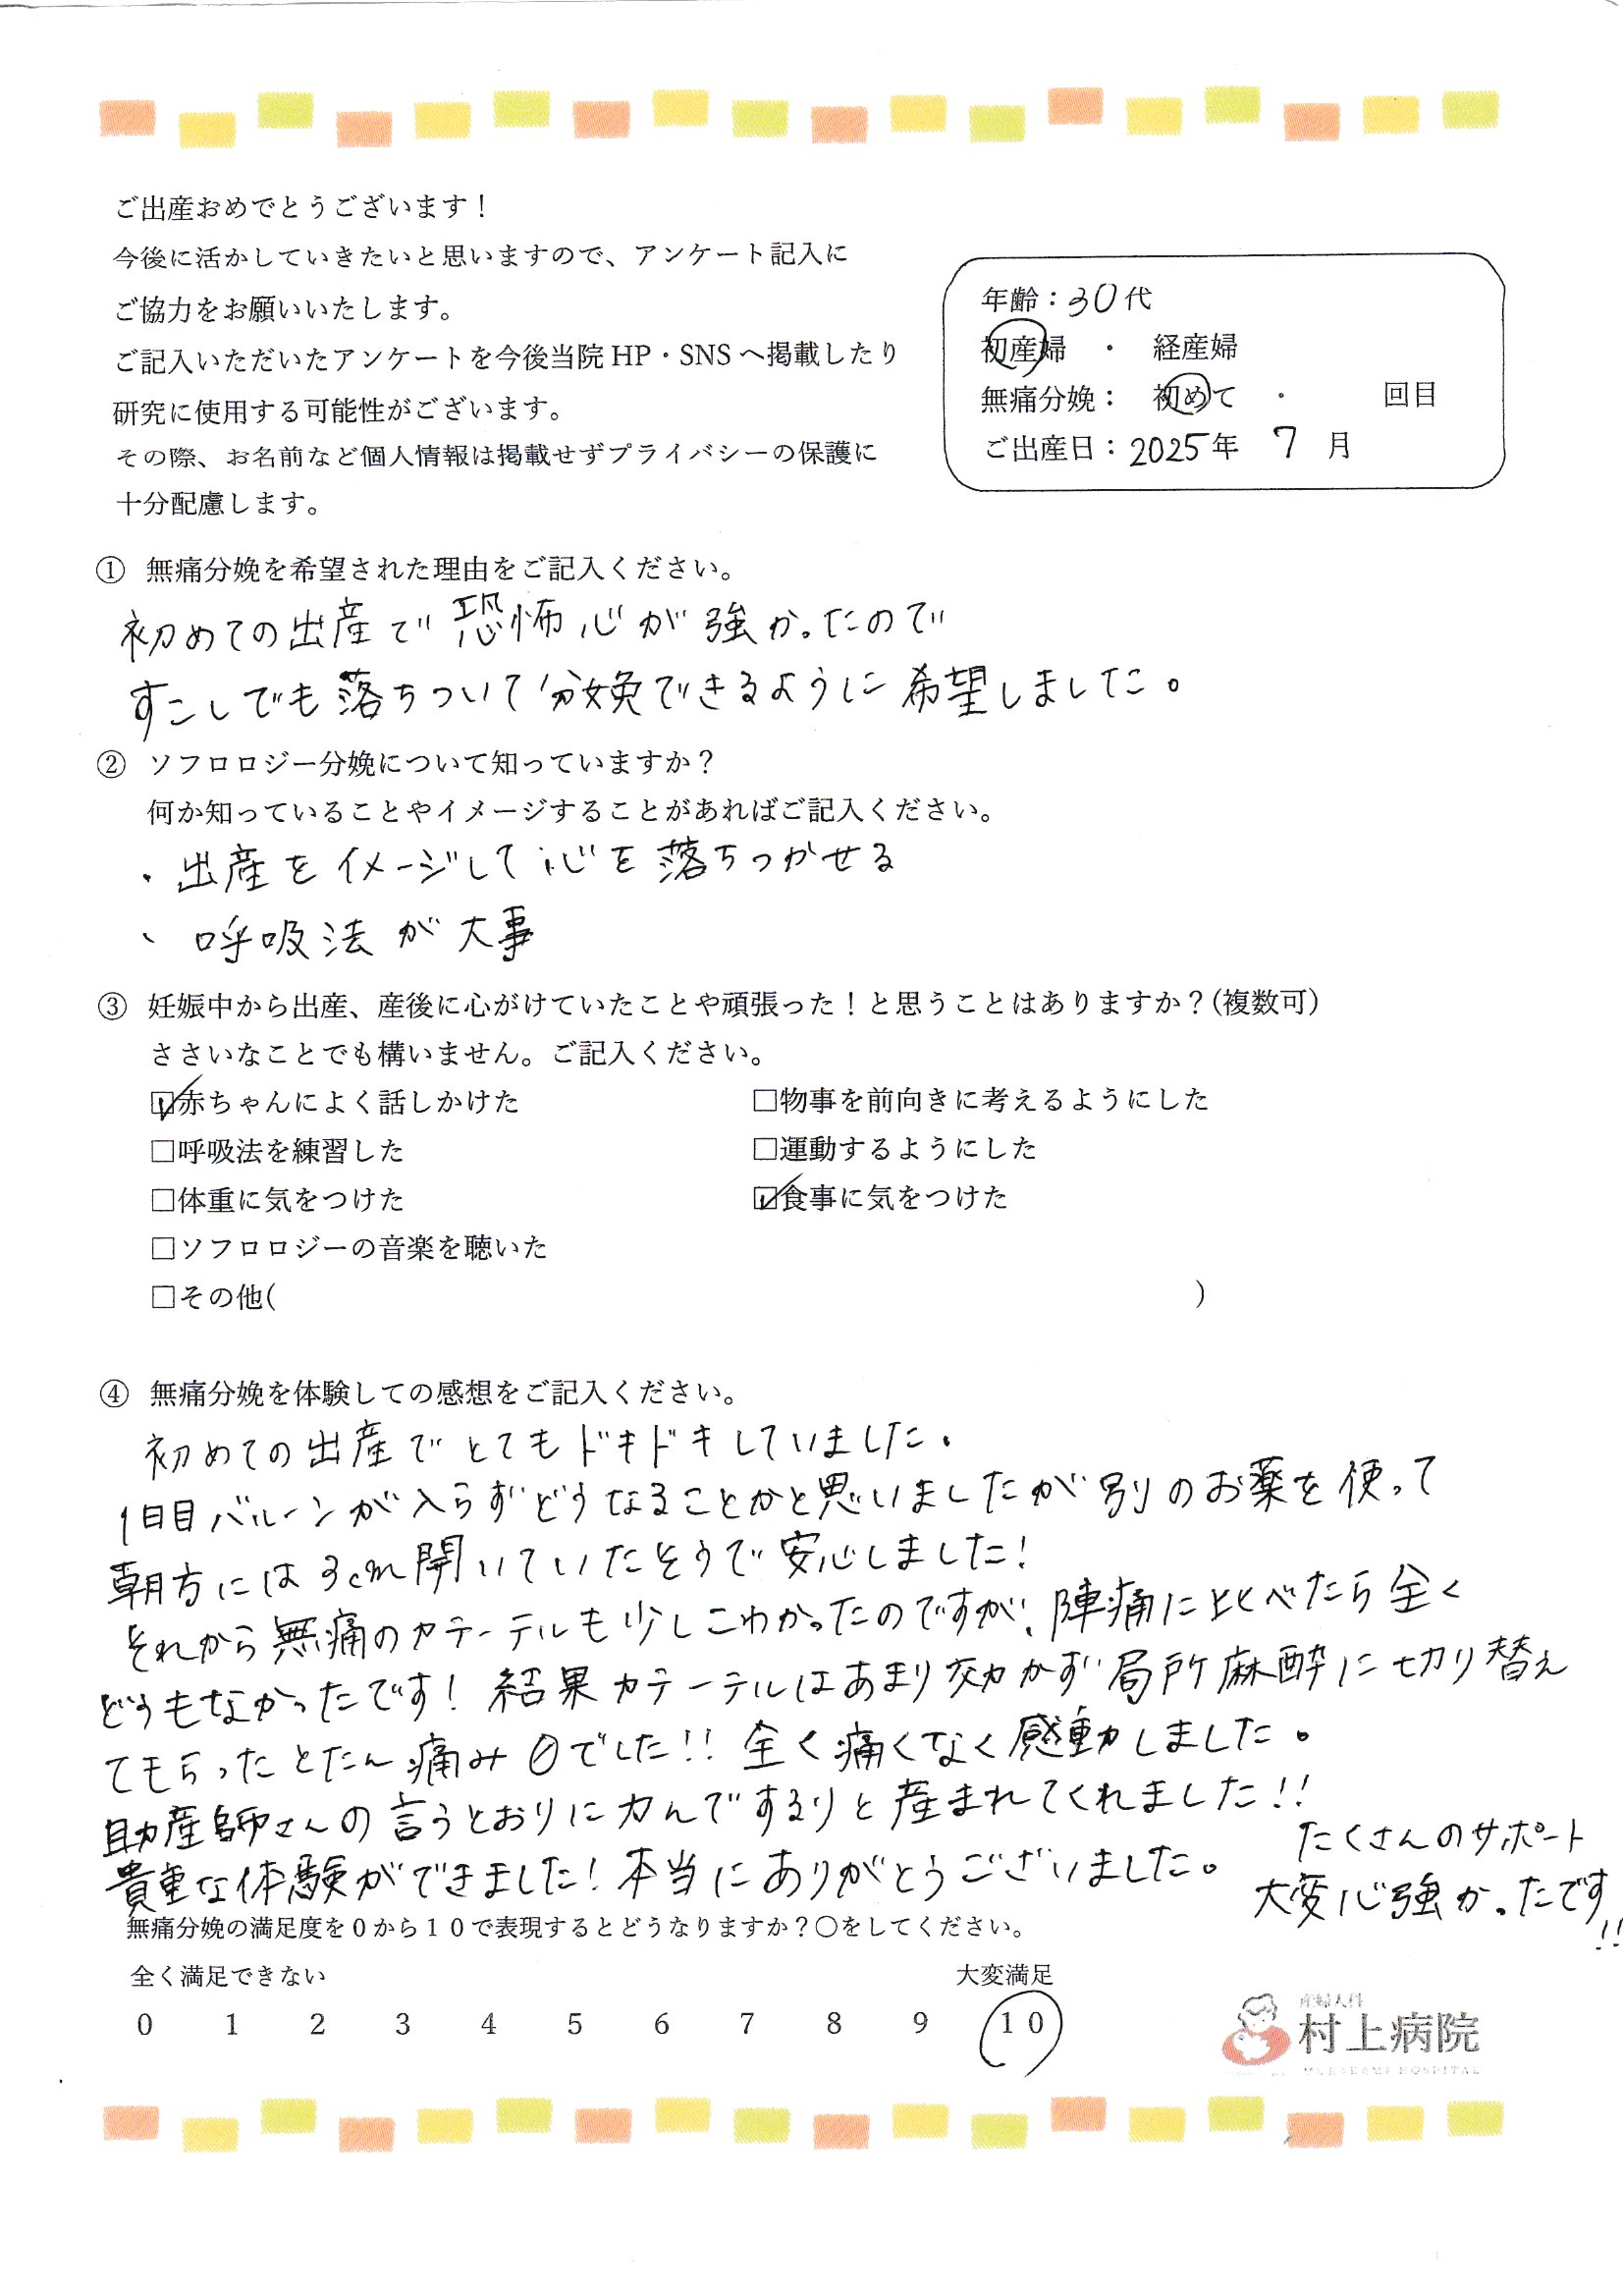 ご出産おめでとうございます！
今後に活かしていきたいと思いますので、アンケート記入に
ご協力をお願いいたします。
ご記入いただいたアンケートを今後当院 HP・SNS へ掲載したり
研究に使用する可能性がございます。
その際、お名前など個人情報は掲載せずプライバシーの保護に
十分配慮します。
年齢：30代
初産婦 ・ 経産婦
無痛分娩： 初めて ・ 回目
ご出産日：2025年 7 月
① 無痛分娩を希望された理由をご記入ください。
初めての出産で恐怖心が強かったので
すこしでも落ちついて分娩できるように希望しました。
② ソフロロジー分娩について知っていますか？
何か知っていることやイメージすることがあればご記入ください。
・出産をイメージして心を落ちつかせる
、呼吸法が大事
③ 妊娠中から出産、産後に心がけていたことや頑張った！と思うことはありますか？（複数可）
ささいなことでも構いません。ご記入ください。
☑赤ちゃんによく話しかけた □物事を前向きに考えるようにした
□呼吸法を練習した □運動するようにした
□体重に気をつけた ☑食事に気をつけた
□ソフロロジーの音楽を聴いた
□その他( )
④ 無痛分娩を体験しての感想をご記入ください。
初めての出産でとてもドキドキしていました。
1日目バルーンが入らずどうなることかと思いましたが別のお薬を使って
朝方には3cm開いていたそうで安心しました！
それから無痛のカテーテルも少しこわかったのですが、陣痛に比べたら全く
どうもなかったです！結果カテーテルはあまり効かず局所麻酔に切り替え
てもらったとたん痛み0でした!!全く痛くなく感動しました。
助産師さんの言うとおりに力んでするりと産まれてくれました!!
貴重な体験ができました！本当にありがとうございました。
たくさんのサポート
大変心強かったです!!
無痛分娩の満足度を０から１０で表現するとどうなりますか？〇をしてください。
全く満足できない 大変満足
0 1 2 3 4 5 6 7 8 9 10
産婦人科
村上病院
MURAKAMI HOSPITAL